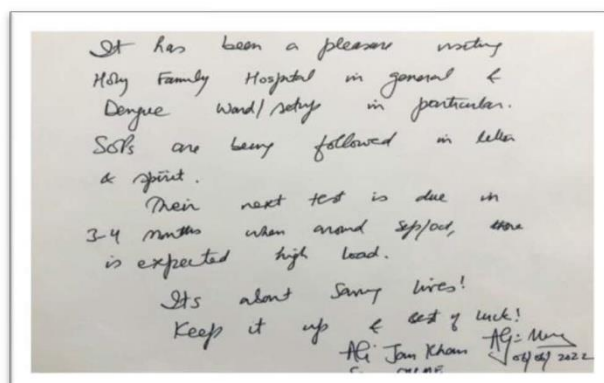 It has been a pleasure visiting
Holy Family Hospital in general &
Dengue Ward/setup in particular.
SOPs are being followed in letter
& spirit.
Their next test is due in
3-4 months when around Sep/Oct, there
is expected high load.
Its about saving lives!
Keep it up & best of luck!
Ali Jan Khan
2022